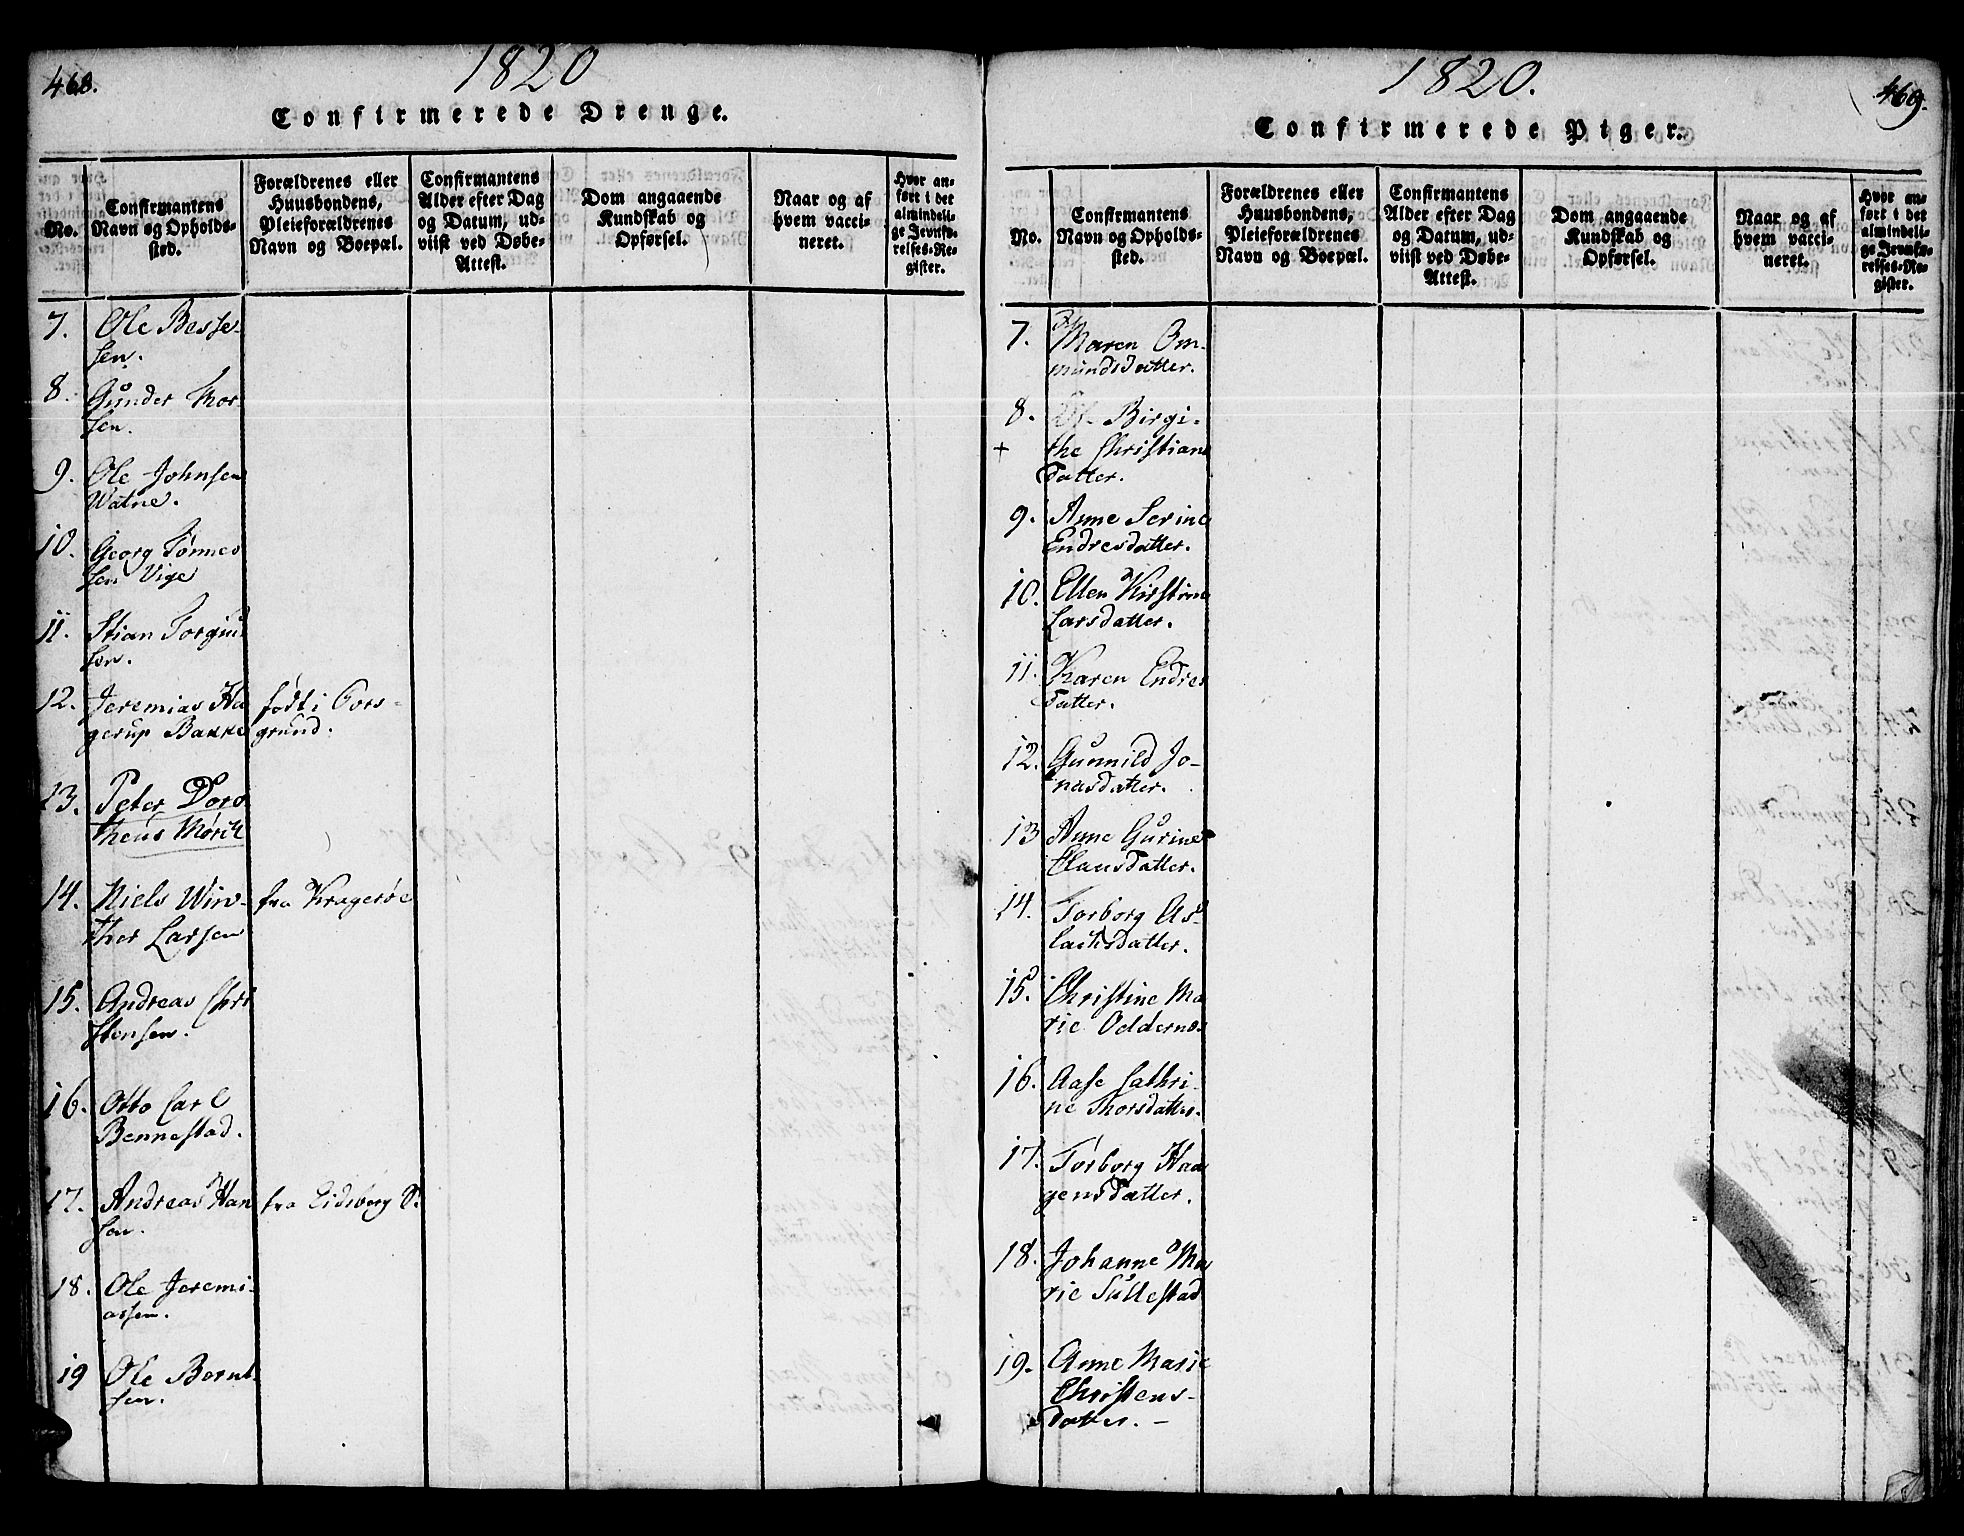 468.
1820
Confirmerede Drenge.
No.
Confirmantens
Navn og Opholds-
sted.
Forældrenes eller
Huusbondens,
Pleieforældrenes
Navn og Boepæl.
Confirmantens
Alder efter Dag
og Datum, ud-
viist ved Døbe-
Attest.
Dom angaaende
Kundskab og
Opførsel.
Naar og af
hvem vacci-
neret.
Hvor an-
ført i det
almindeli-
ge Jevnfø-
relses-Re-
gister.
7. Ole Besse-
sen.
8. Gunder Thor-
sen.
9. Ole Johnsen
Watne.
10. Georg Tønnes
sen Vige
11. Stian Torgius
sen.
12. Jeremias Ha født i Pors-
gerup Bakke grund.
13. Peter Doro
theus Mørch
14. Niels Win- fra Kragerøe
ther Larsen
15. Andreas Chri
stensen.
16. Otto Carl
Bennestad.
17. Andreas Han fra Eidsberg
sen.
18. Ole Jeremi-
assen.
19 Ole Bernt
sen.
1820.
469.
Confirmerede Piger.
No.
Confirmantens
Navn og Opholds-
sted.
Forældrenes eller
Huusbondens,
Pleieforældrenes
Navn og Boepæl.
Confirmantens
Alder efter Dag
og Datum, ud-
viist ved Døbe-
Attest.
Dom angaaende
Kundskab og
Opførsel.
Naar og af
hvem vacci-
neret.
Hvor an-
ført i det
almindeli-
ge Jevnfø-
relses-Re-
gister.
7. Maren Om-
mundsdatter.
8. Birgi-
+ the Christians
datter.
9. Anne Serine
Endresdatter.
10. Ellen Kirstine
Larsdatter.
11. Karen Endres
datter.
12. Gunnild Jo-
nasdatter.
13 Anne Gurine
Clausdatter.
14. Torborg As-
lachsdatter.
15. Christine Ma
rie Oddernes
16. Aase Cathri-
ne Thorsdatter.
17. Torborg Haa
gensdatter.
18. Johanne Ma
rie Sullestad
19. Anne Marie
Christens-
datter. –